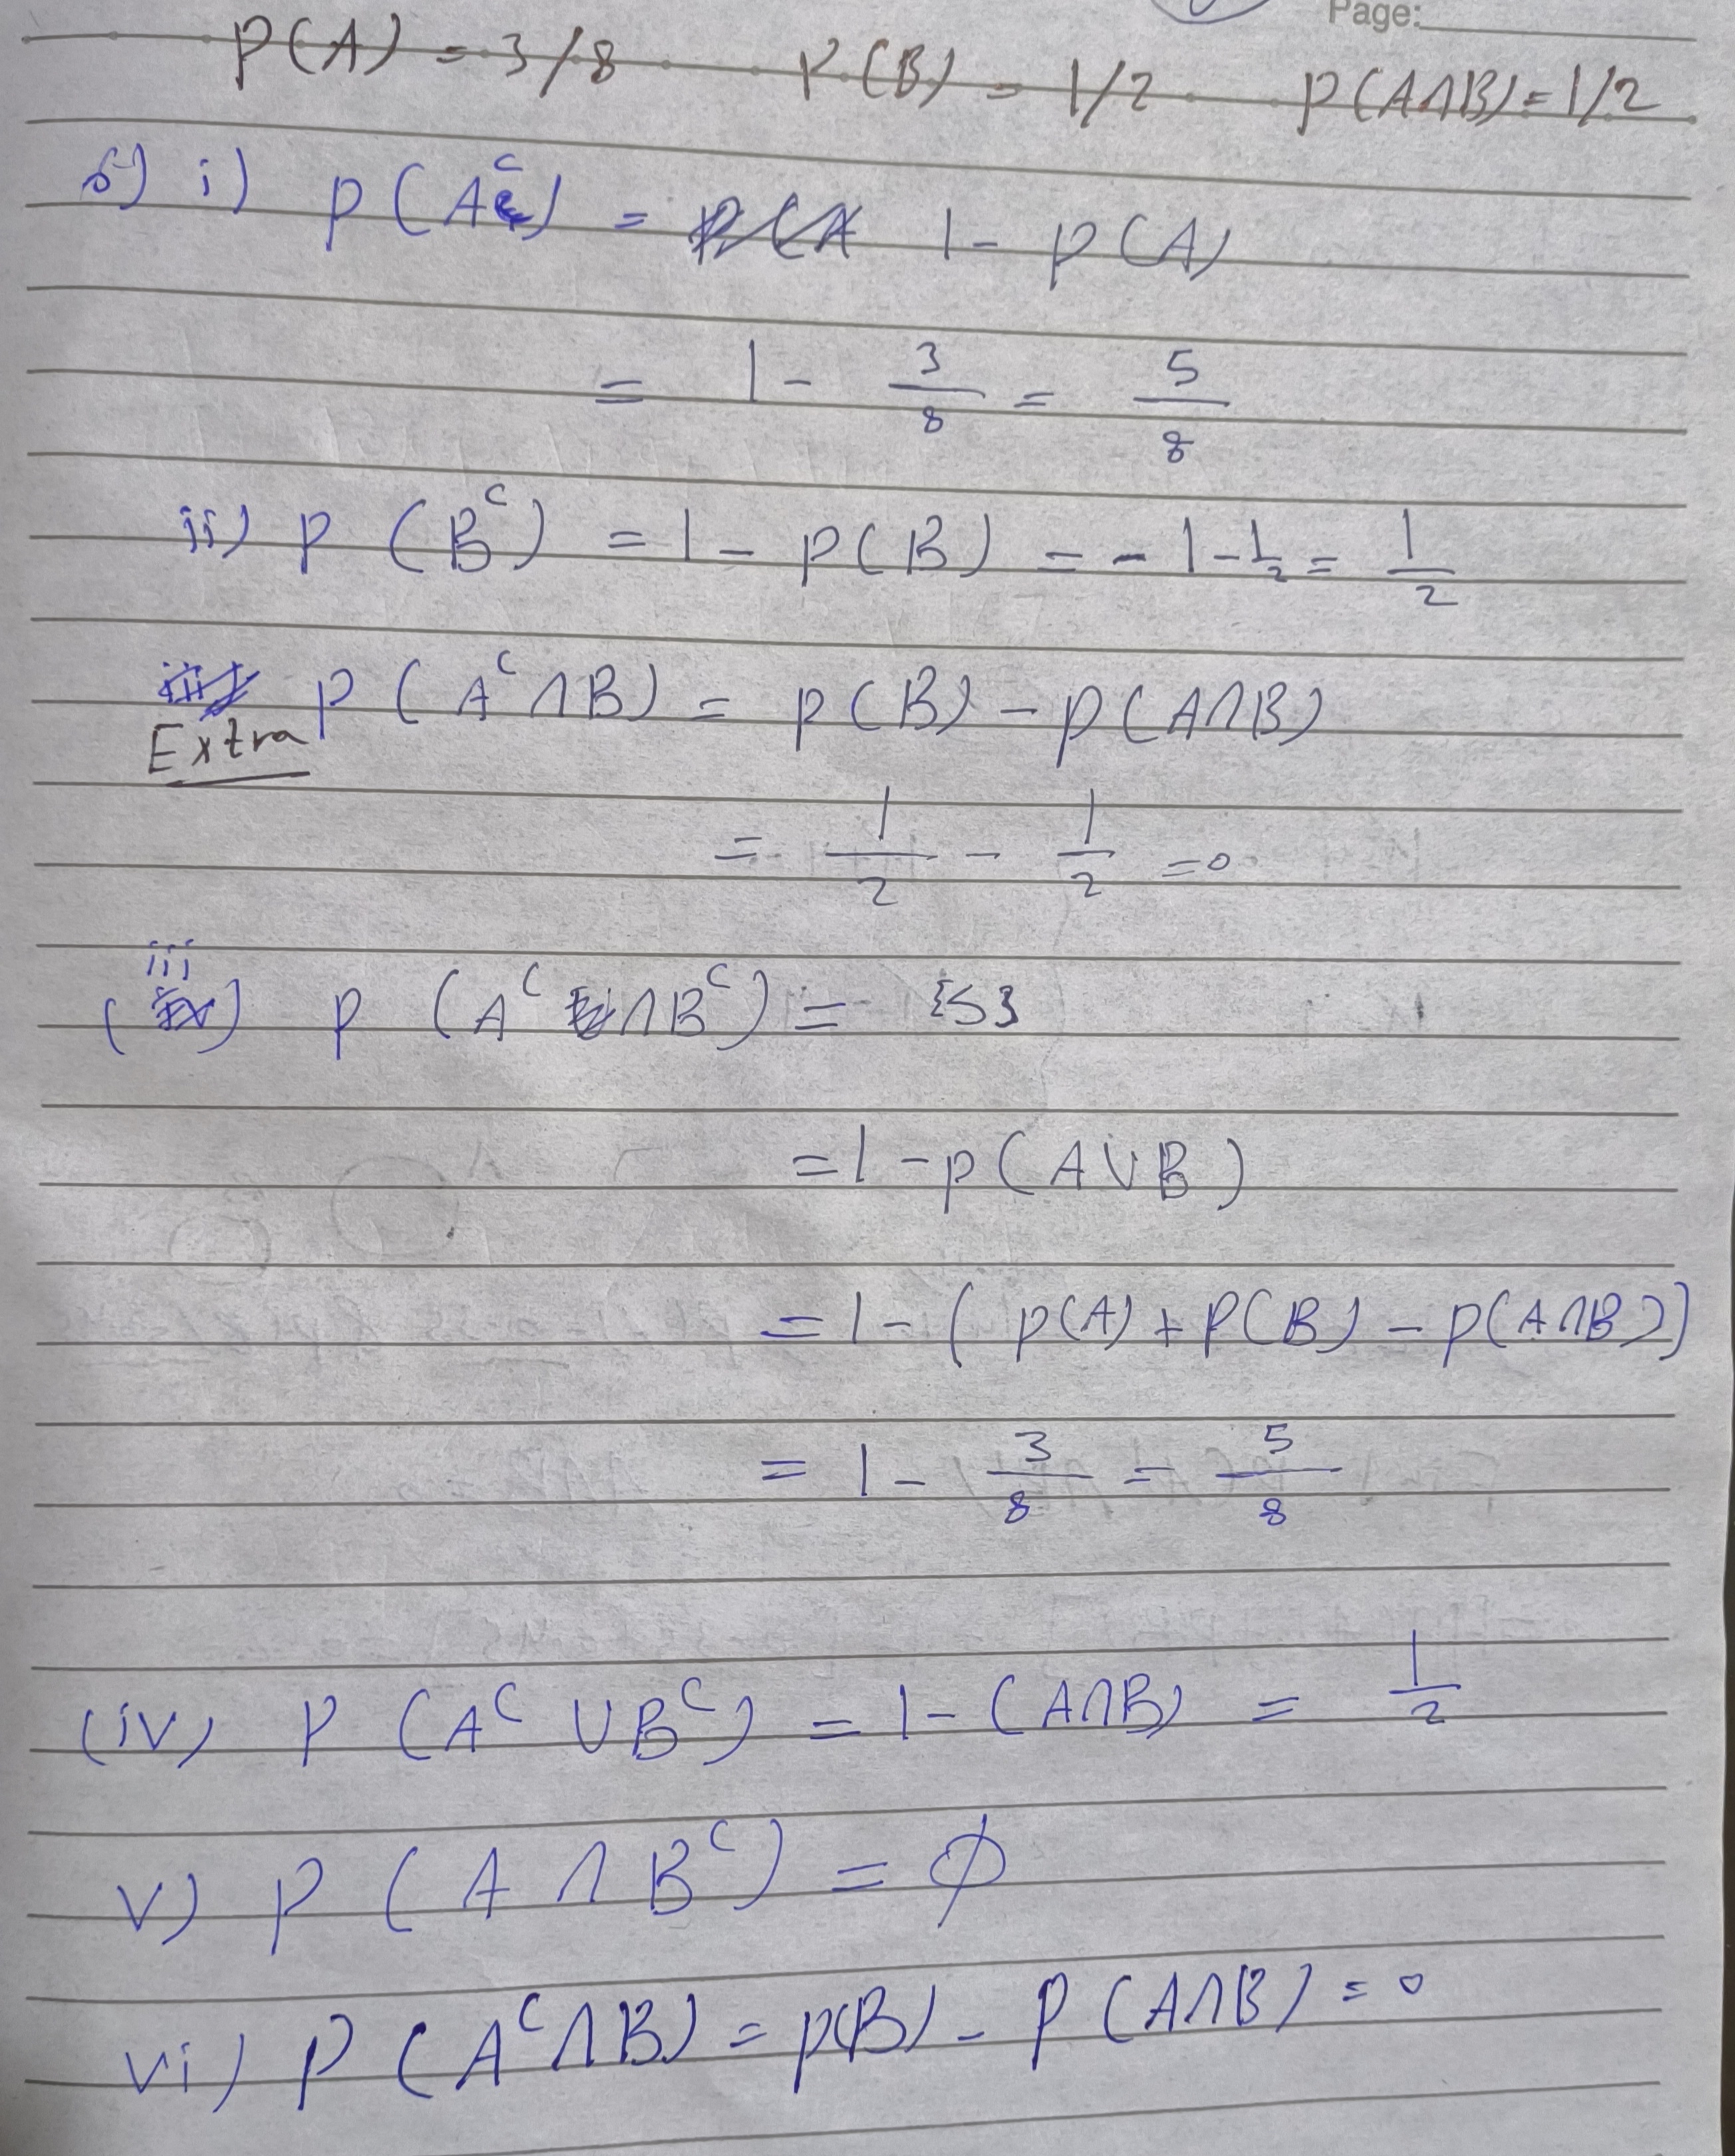 Page:
P(A) = 3/8 P(B) = 1/2 P(A∩B) = 1/2
6) i) P(Aᶜ) = 1 - P(A)
= 1 - 3/8 = 5/8
ii) P(Bᶜ) = 1 - P(B) = - 1 - 1/2 = 1/2
P(Aᶜ∩B) = P(B) - P(A∩B)
Extra
= 1/2 - 1/2 = 0
(iii) P(Aᶜ∩Bᶜ) =
= 1 - P(A∪B)
= 1 - (P(A) + P(B) - P(A∩B))
= 1 - 3/8 = 5/8
(iv) P(Aᶜ∪Bᶜ) = 1 - (A∩B) = 1/2
v) P(A∩Bᶜ) = ϕ
vi) P(Aᶜ∩B) = P(B) - P(A∩B) = 0